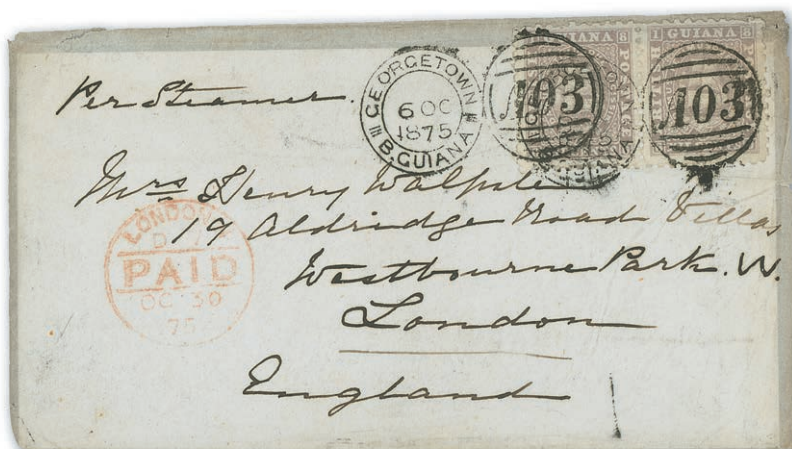 Per Steamer.
GEORGETOWN
6 OC
1875
B. GUIANA
GUIANA 8
1 GUIANA 8
POSTAGE
A03
A03
Mrs Henry Walpole
19 Aldridge Road Villas
Westbourne Park. W.
London
England
LONDON
PAID
OC 30
75